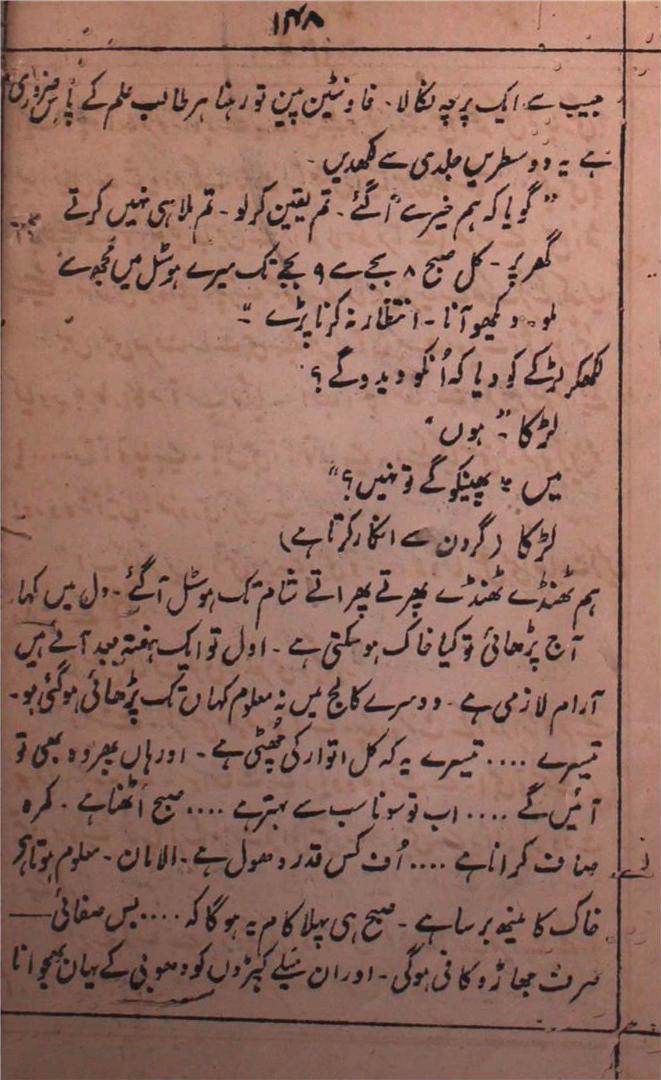 ۱۴۸
جیب سے ایک پرچہ نکالا۔ فاونٹین پین تو رہنا ہر طالب علم کے پاس ضروری
ہے یہ دو سطریں جلدی سے لکھدیں۔
"گویا کہ ہم خیرے آگئے۔ تم یقین کرلو۔ تم ملا ہی نہیں کرتے
گھر پر۔ کل صبح ۸ بجے سے ۹ بجے تک میرے ہوسٹل میں مجھ سے
لو۔ دیکھو آنا۔ انتظار نہ کرنا پڑے"
لکھکر لڑکے کو دیا کہ اُنکو دیدو گے؟
لڑکا "ہوں"
میں " پھینکو گے تو نہیں؟"
لڑکا (گردن سے انکار کرتا ہے)
ہم ٹھنڈے ٹھنڈے پھرتے پھراتے شام تک ہوسٹل آگئے۔ دل میں کہا
آج پڑھائی تو کیا خاک ہو سکتی ہے۔ اول تو ایک ہفتہ بعد آئے ہیں
آرام لازمی ہے۔ دوسرے کالج میں نہ معلوم کہاں تک پڑھائی ہوگئی ہو۔
تیسرے .... تیسرے یہ کہ کل اتوار کی چھٹی ہے۔ اور ہاں پھر وہ بھی تو
آئیں گے .... اب تو سونا سب سے بہتر ہے .... صبح اُٹھنا ہے۔ کمرہ
صاف کرانا ہے .... اُف کس قدر دھول ہے۔ الامان۔ معلوم ہوتا ہر
خاک کا مینھ برسا ہے۔ صبح ہی پہلا کام یہ ہوگا کہ .... بس صفائی——
صرف جھاڑو کافی ہوگی۔ اور ان میلے کپڑوں کو دھوبی کے یہاں بھجوانا